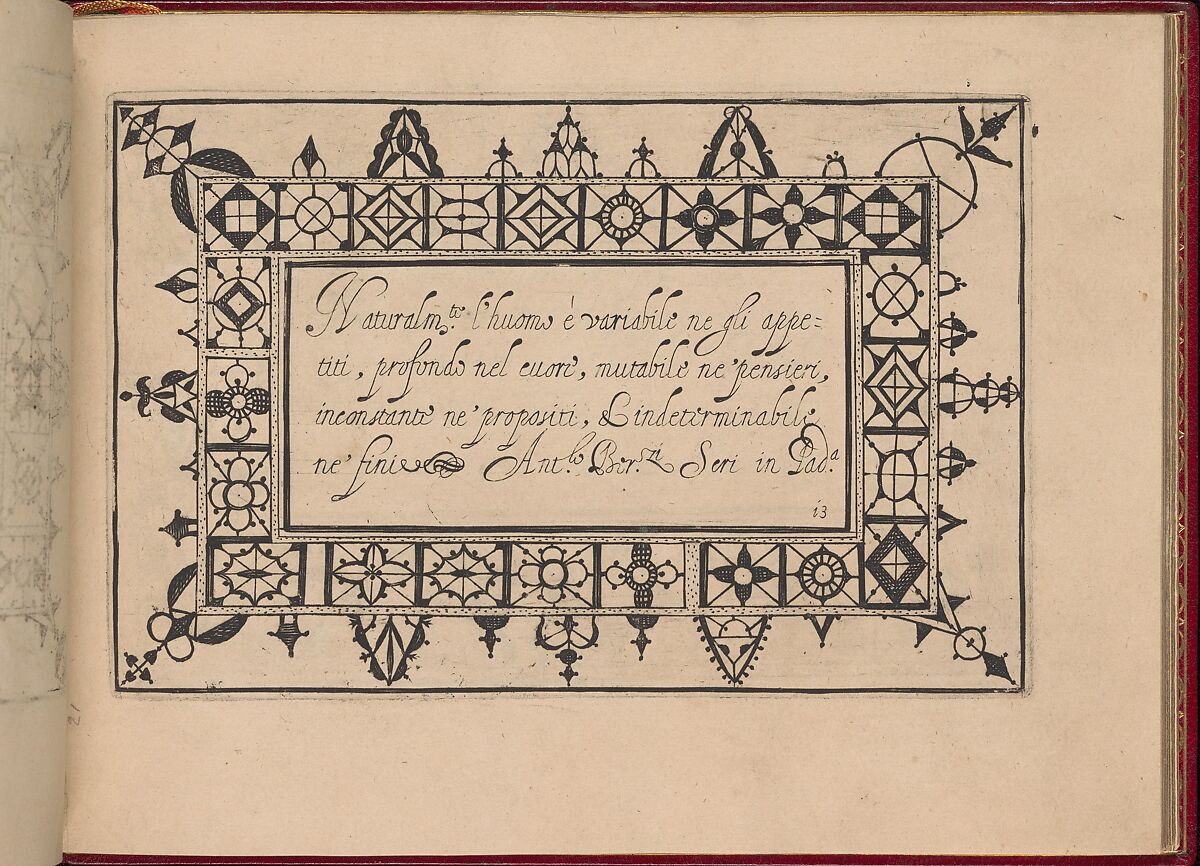 Naturalm.te l'huomo è variabile ne gli appe=
titi, profondo nel cuore, mutabile ne' pensieri,
inconstante ne' propositi, & indeterminabile
ne' fini Ant.lo Ber.zzi Scri in Pad.a
13